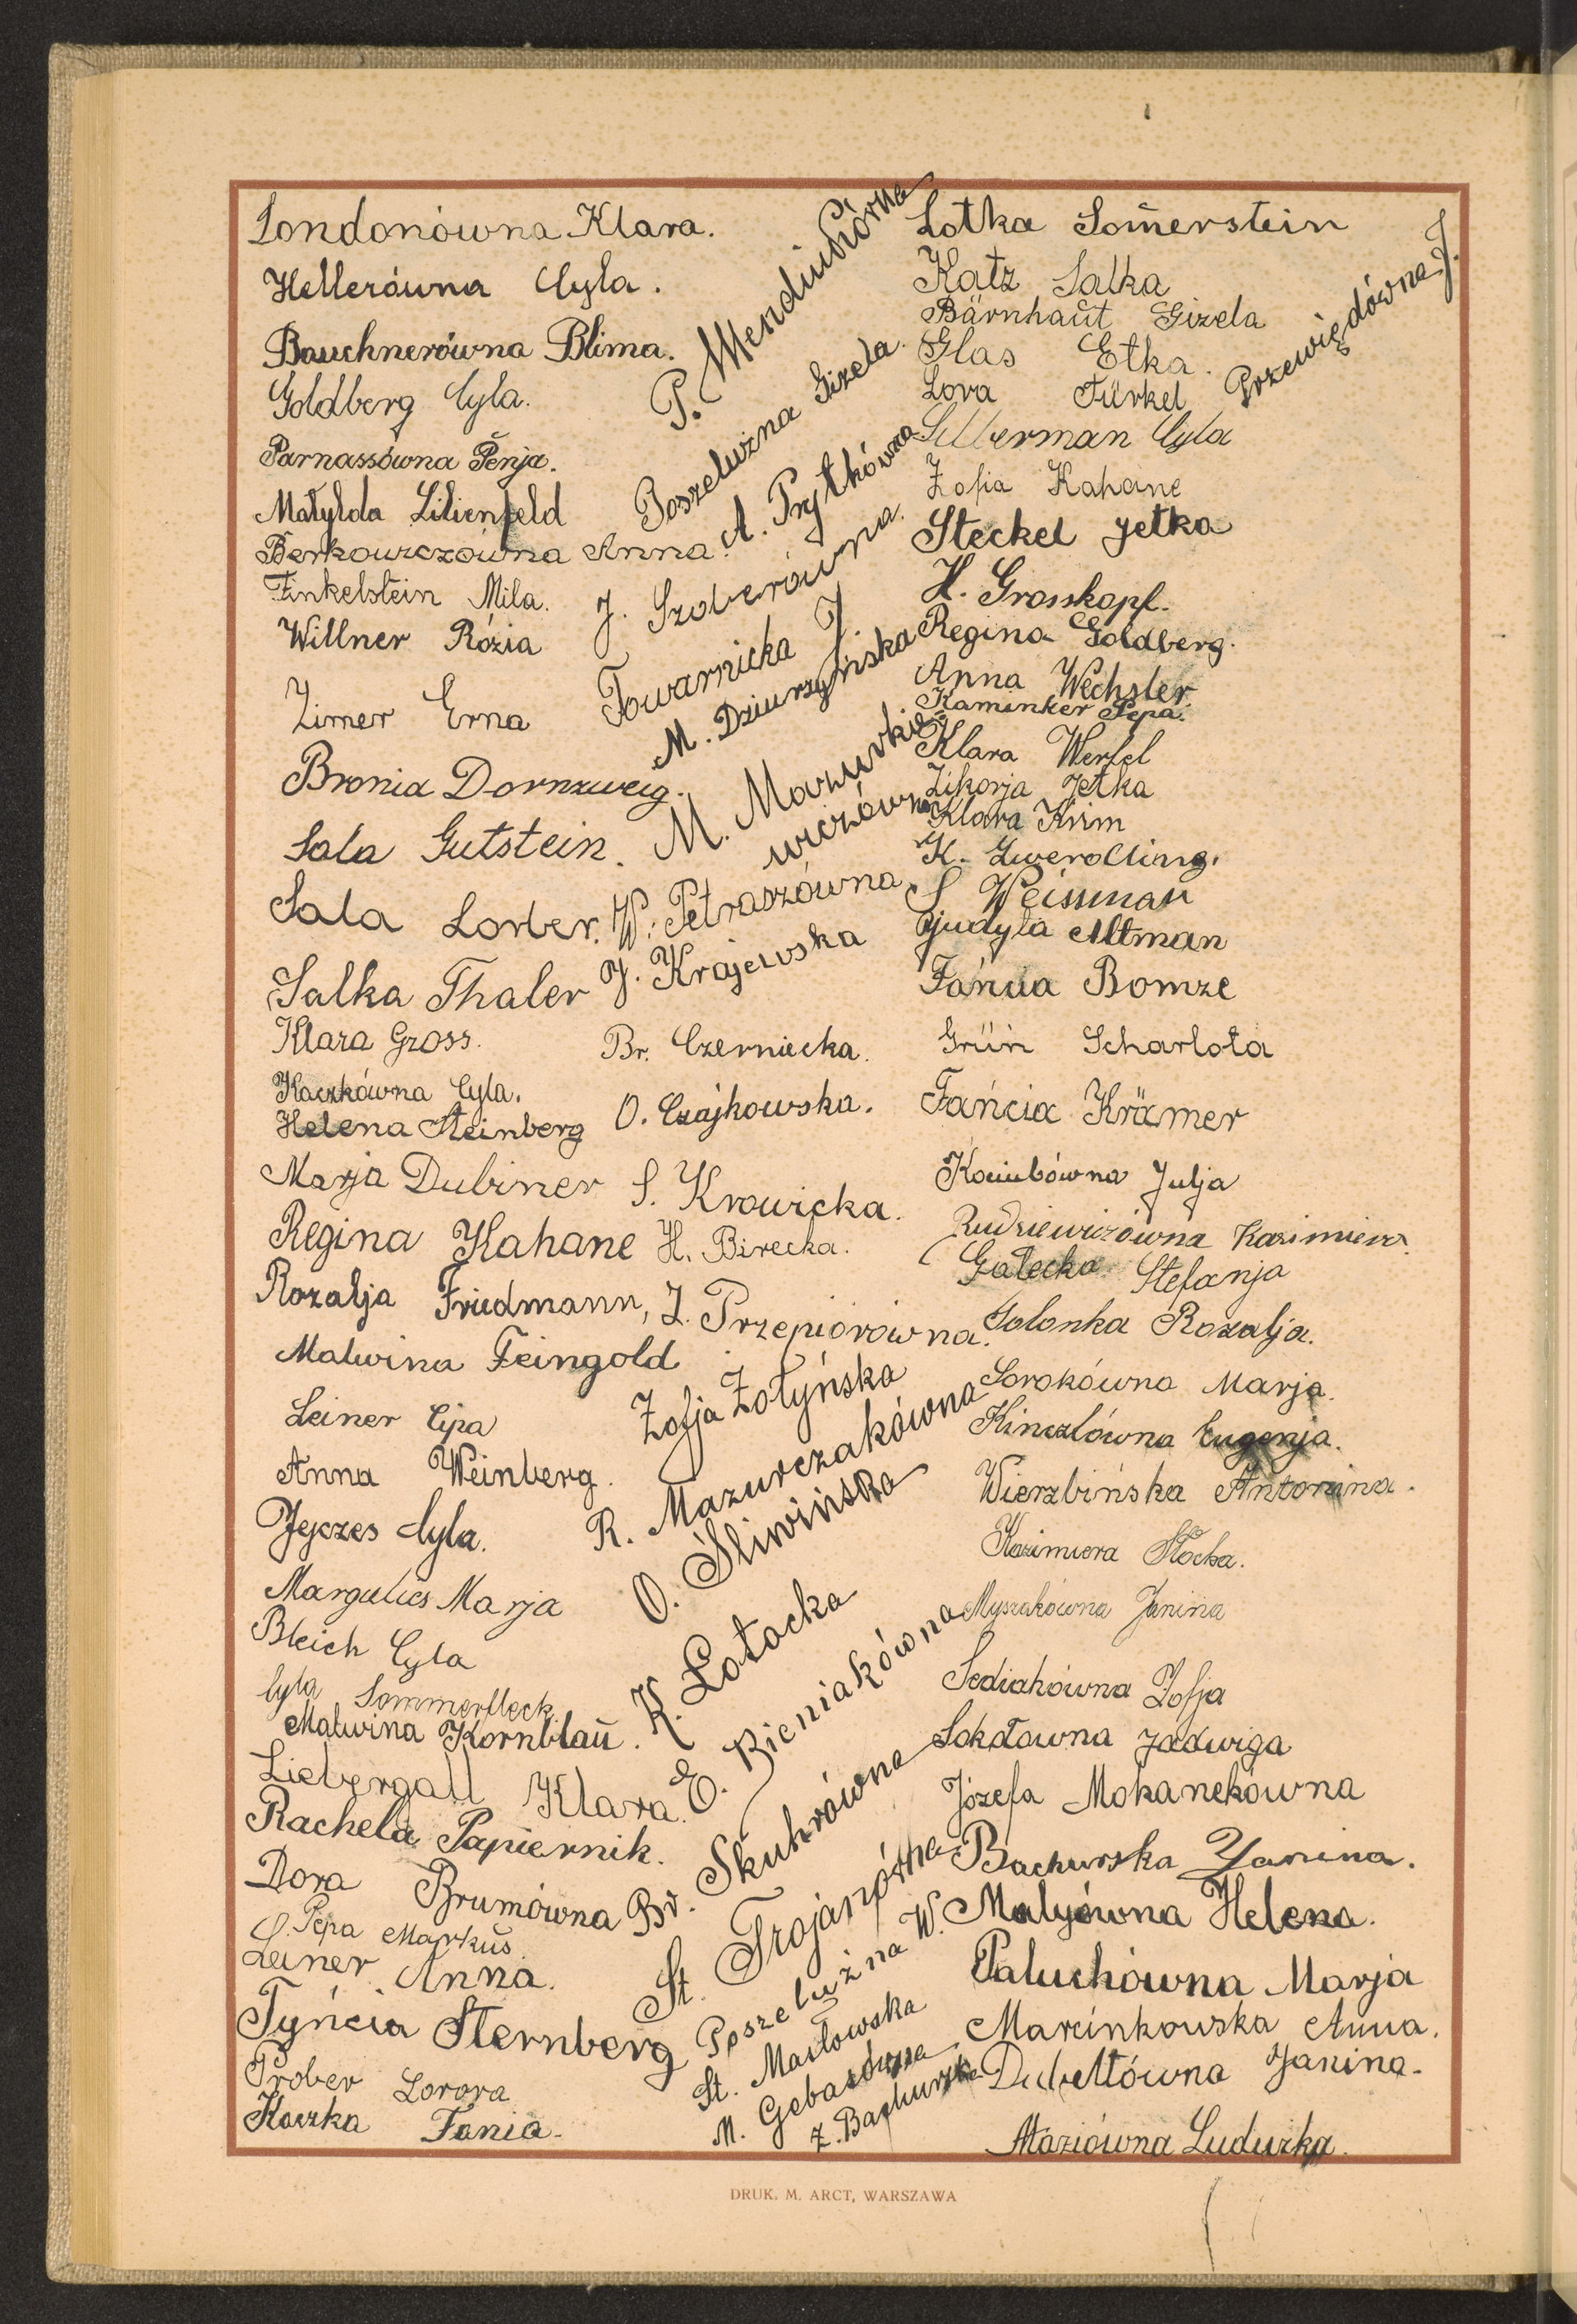 Londonówna Klara.
Hellerówna Cyla.
Bauchnerówna Blima.
Goldberg Cyla.
Parnassówna Penja.
Matylda Lilienfeld
Berkowiczówna Anna.
Finkelstein Mila.
Willner Rózia
Zimer Erna
Bronia Dornzweig.
Sala Gutstein.
Sala Lorber.
Salka Thaler
Klara Gross.
Kaczkówna Cyla.
Helena Steinberg
Marja Dubiner
Regina Kahane
Rozalja Friedmann,
Malwina Feingold
Leiner Cipa
Anna Weinberg.
Jejczes Cyla.
Margulies Marja
Bleich Cyla
Cyla Sommerfleck
Malwina Kornblaŭ.
Liebergall Klara.
Rachela Papiernik.
Dora Brumówna
Pepa Markus
Leiner Anna.
Tyńcia Sternberg
Prober Lorora
Kaczka Fania.
P. Mendiukówna
Poszeluźna Gizela.
A. Prytkówna
J. Szoberówna.
Towarnicka J.
M. Dziurzyńska
M. Mazurkie-
wiczówna
W. Petraszówna
J. Krajewska
Br. Czerniecka.
O. Czajkowska.
S. Krowicka.
H. Birecka.
Z. Przepiórówna.
Zofja Żołyńska
R. Mazurczakówna
O. Śliwińska
K. Łotocka
E. Bieniakówna
Br. Skuhrówna
St. Trojanówna
Poszelużna W.
St. Masłowska
M. Gebasówna
Z. Bachurska
Lotka Som̄erstein
Katz Salka
Bärnhaŭt Gizela
Glas Etka.
Lora Fürkel
Przewiędówna J.
Silberman Cyla
Zofia Kahane
Steckel Jetka
H. Grosskopf.
Regina Goldberg.
Anna Wechsler
Kaminker Pepa.
Klara Werfel
Zikorja Jetka
Klara Kirm
K. Zwerdling.
S Weissman
Judyta Altman
Fańcia Bomze
Grün Scharlota
Fańcia Krämer
Kociubówna Julja
Rudziewiczówna Kazimiera.
Gałecka Stefanja
Solonka Rozalja.
Sorokówna Marja.
Kinczlówna Eugenja.
Wierzbińska Antonina.
Kazimiera Słocka.
Myszakówna Janina
Sediakówna Zofja
Sokołowna Jadwiga
Józefa Mokanekówna
Bachurska Janina.
Malyówna Helena.
Paluchówna Marja
Marcinkowska Anna.
Dubettówna Janina.
Maziówna Ludwika.
DRUK. M. ARCT, WARSZAWA